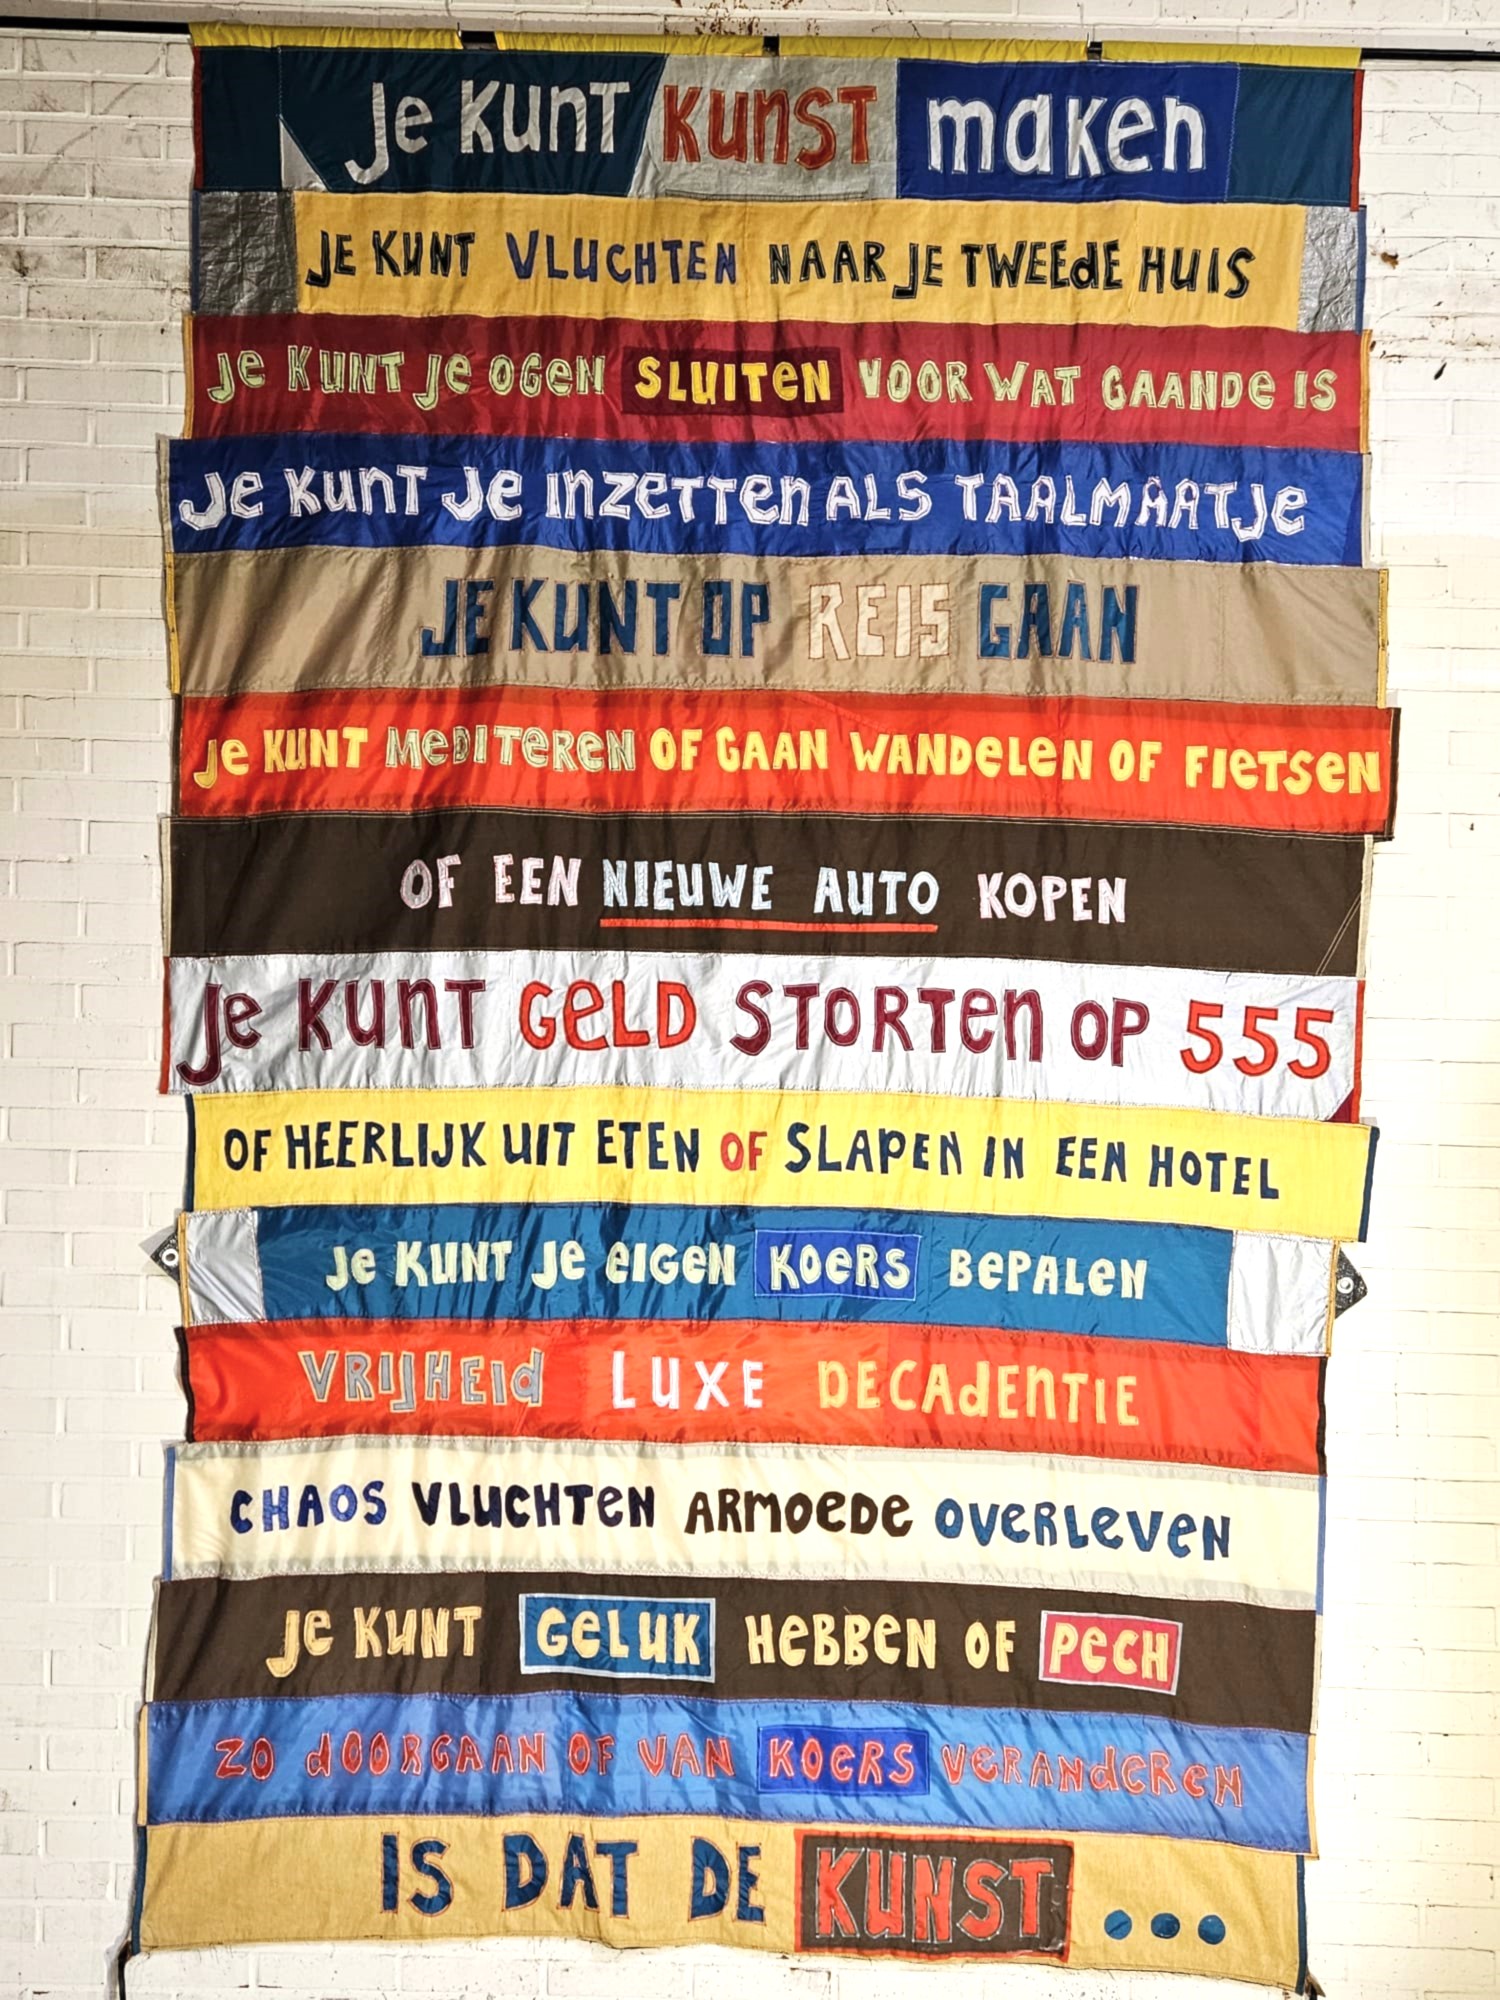 Je KunT KUNST maken
JE KUNT VLUCHTEN NAAR JE TWEEdE HUIS
Je KUNT Je OGeN SLUITeN VOOR WAT GAANDe IS
Je KunT Je InZeTTen ALS TAALMAATJe
JE KUNT OP REIS GAAN
Je KUNT MeDITEReN OF GAAN WANDeLeN OF FIeTSeN
OF EEN NIEUWE AUTO KOPEN
Je KunT GeLD STORTen OP 555
OF HEERLIJK UIT ETEN OF SLAPEN IN EEN HOTEL
Je KUNT Je eIGeN KOeRS BePALeN
VRIJHEId LUXE DECAdEnTIE
CHAOS VLUCHTeN ARMOeDe OVeRLeVeN
Je KUNT GeLUK HeBBeN OF PeCH
ZO dOORGAAN OF VAN KOeRS VeRANdeReN
IS DAT DE KUNST ...